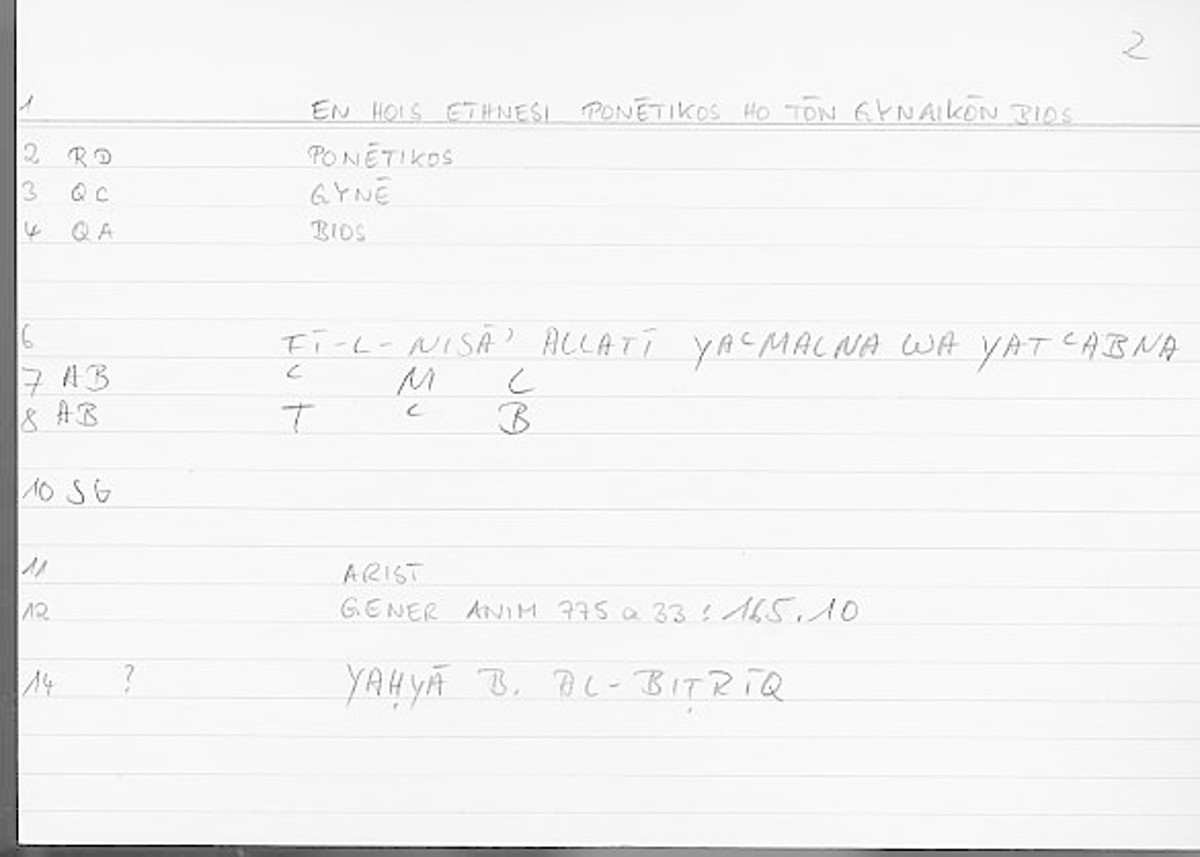 2
1 EN HOIS ETHNESI PONĒTIKOS HO TŌN GYNAIKŌN BIOS
2 RD PONĒTIKOS
3 QC GYNĒ
4 QA BIOS
6 FĪ-L-NISĀʾ ALLATĪ YAʿMALNA WA YATʿABNA
7 AB ʿ M L
8 AB T ʿ B
10 SG
11 ARIST
12 GENER ANIM 775 a 33 : 165.10
14 ? YAḤYĀ B. AL-BIṬRĪQ